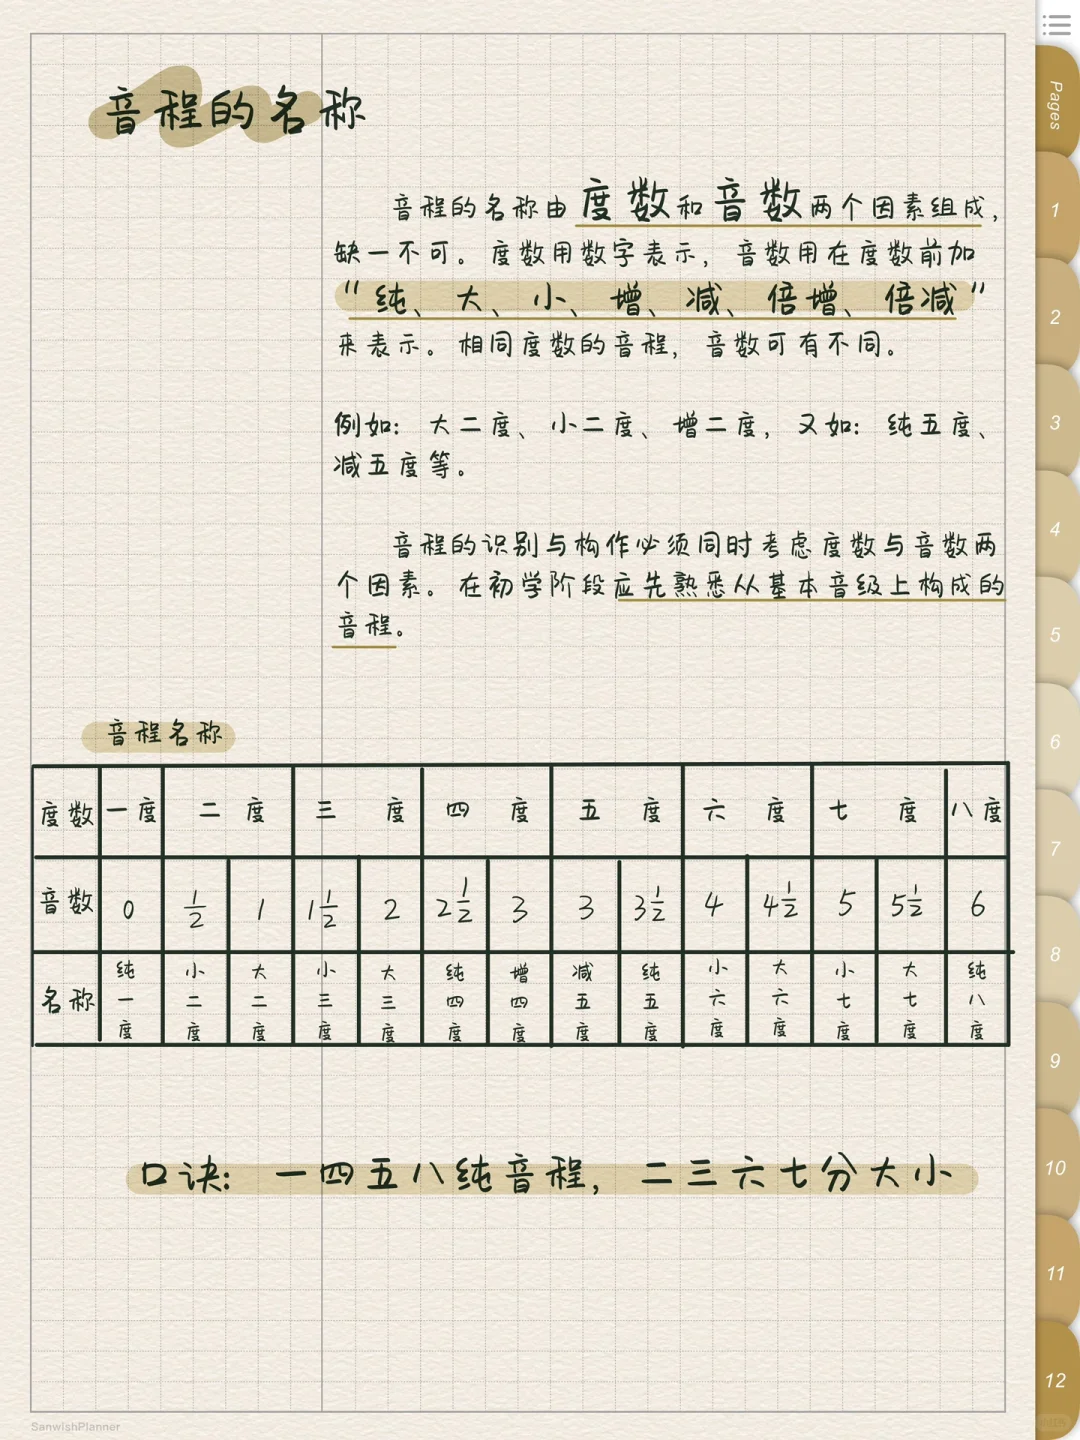 音程的名称
音程的名称由度数和音数两个因素组成，
缺一不可。度数用数字表示，音数用在度数前加
“纯、大、小、增、减、倍增、倍减”
来表示。相同度数的音程，音数可有不同。
例如：大二度、小二度、增二度，又如：纯五度、
减五度等。
音程的识别与构作必须同时考虑度数与音数两
个因素。在初学阶段应先熟悉从基本音级上构成的
音程。
音程名称
度数 一度 二度 三度 四度 五度 六度 七度 八度
音数 0 1/2 1 1 1/2 2 2 1/2 3 3 3 1/2 4 4 1/2 5 5 1/2 6
名称 纯一度 小二度 大二度 小三度 大三度 纯四度 增四度 减五度 纯五度 小六度 大六度 小七度 大七度 纯八度
口诀：一四五八纯音程，二三六七分大小
Pages
1
2
3
4
5
6
7
8
9
10
11
12
SanwishPlanner